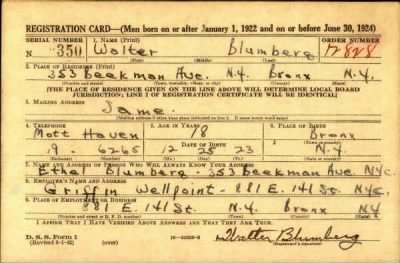 REGISTRATION CARD—(Men born on or after January 1, 1922 and on or before June 30, 1924)
SERIAL NUMBER 1. NAME (Print) ORDER NUMBER
N 350 Walter Blumberg 12828
(First) (Middle) (Last)
2. PLACE OF RESIDENCE (Print)
353 Beekman Ave. N.Y. Bronx N.Y.
(Number and street) (Town, township, village, or city) (County) (State)
[THE PLACE OF RESIDENCE GIVEN ON THE LINE ABOVE WILL DETERMINE LOCAL BOARD
JURISDICTION; LINE 2 OF REGISTRATION CERTIFICATE WILL BE IDENTICAL]
3. MAILING ADDRESS
Same.
(Mailing address if other than place indicated on line 2. If same insert word same)
4. TELEPHONE 5. AGE IN YEARS 6. PLACE OF BIRTH
Mott Haven 18 Bronx
9. 6265 12 25 23 N.Y.
7. NAME AND ADDRESS OF PERSON WHO WILL ALWAYS KNOW YOUR ADDRESS
Ethel Blumberg - 353 beekman Ave. NYC.
8. EMPLOYER'S NAME AND ADDRESS
Griffin Wellpoint - 881 E. 141 St. NYC.
9. PLACE OF EMPLOYMENT OR BUSINESS
881 E. 141 St. N.Y. Bronx N.Y.
(Number and street or R. F. D. number) (Town) (County) (State)
I AFFIRM THAT I HAVE VERIFIED ABOVE ANSWERS AND THAT THEY ARE TRUE.
D. S. S. Form 1
(Revised 6-1-42) (over) Walter Blumberg
(Registrant's signature)